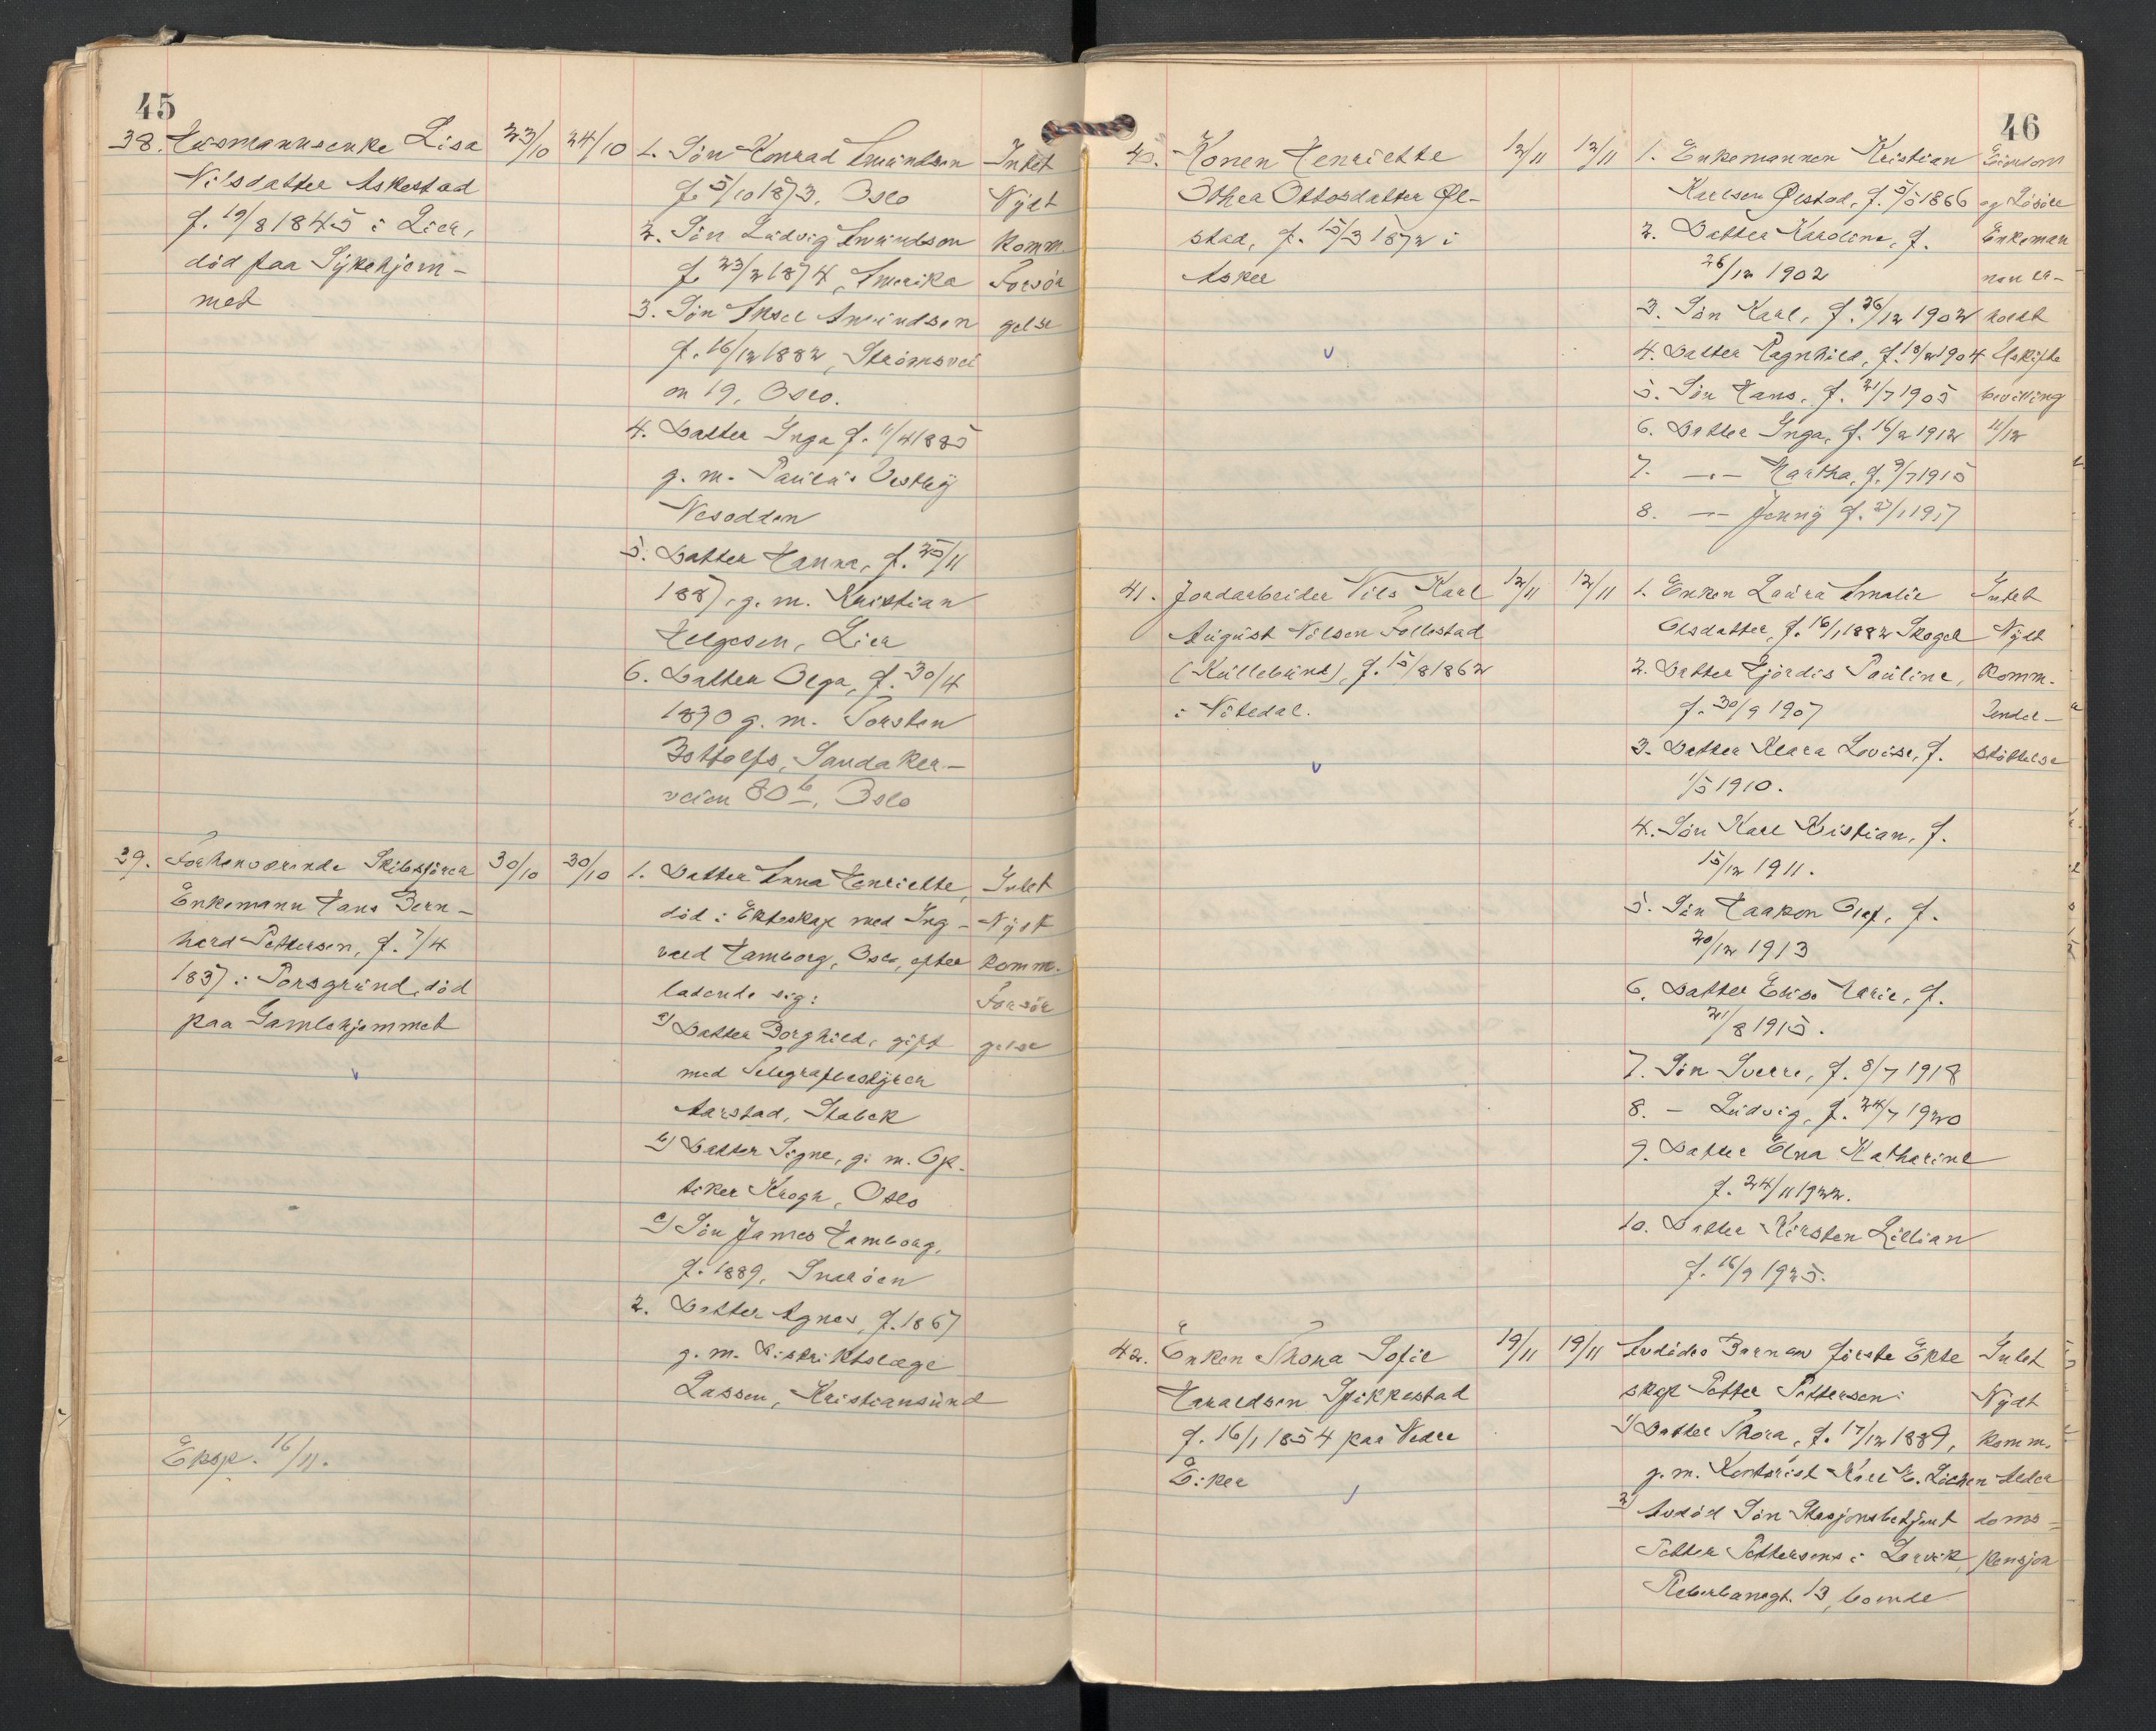 45
38. Husmannsenke Lisa
Nilsdatter Askestad
f. 19/8 1845 i Lier,
död paa Sykehjem-
met
23/10
24/10
1. Sön Konrad Amundsen
f. 5/10 1873, Oslo
2. Sön Ludvig Amundsen
f. 23/2 1874, Amerika
3. Sön Aksel Amundsen
f. 16/12 1882, Strömsvei
en 19, Oslo.
4. Datter Inga f. 11/4 1885
g. m. Paulus Vestby
Nesodden
5. Datter Hanna, f. 25/11
1887, g. m. Kristian
Helgesen, Lier
6. Datter Olga, f. 30/4
1870 g. m. Torsten
Sandaker-
veien 80 b, Oslo
Intet
Nydt
Komm.
Forsör
gelse
39. Forhenværende Skibsförer
Enkemann Hans Bern-
hard Pettersen, f. 7/4
1837 i Porsgrund, död
paa Gamlehjemmet
30/10
30/10
1. Datter Anna Henriette,
död i Ekteskap med Ing-
vald Hamborg, Oslo, efter
ladende sig:
a) Datter Borghild, gift
med Telegrafbestyrer
Aarstad, Stabek
b) Datter Signe, g. m. Op-
tiker Krogh, Oslo
c) Sön James Hamborg,
f. 1889, Snaröen
2. Datter Agnes, f. 1867
g. m. Distriktslæge
Lassen, Kristiansund
Intet
Nydt
Komm.
Forsör
gelse
Eksp. 16/11.
46
40. Konen Henriette
Othea Ottosdatter Øl-
stad, f. 15/3 1872 i
Asker
12/11
12/11
1. Enkemannen Kristian
Karlsen Ølstad, f. 5/5 1866
2. Datter Karoline, f.
26/12 1902
3. Sön Karl, f. 26/12 1902
4. Datter Ragnhild, f. 18/2 1904
5. Sön Hans, f. 21/7 1905
6. Datter Inga, f. 16/2 1912
7. —"— Martha, f. 9/7 1915
8. —"— Jenny f. 27/1 1917
Eiendom
og Lösöre
Enkeman
nen er-
holdt
Uskifte
bevilling
11/12
41. Jordarbeider Nils Karl
August Nilsen Follestad
(Kullebund), f. 15/8 1862
i Nitedal.
12/11
12/11
1. Enken Laura Amalie
Olsdatter, f. 16/1 1882 Skoger
2. Datter Hjördis Pauline,
f. 30/9 1907
3. Datter Klara Lovise, f.
1/5 1910.
4. Sön Karl Kristian, f.
15/12 1911.
5. Sön Haakon Olaf, f.
20/12 1913
6. Datter Elise Marie, f.
21/8 1915.
7. Sön Sverre, f. 8/7 1918
8. — Ludvig, f. 24/7 1920
9. Datter Elna Katharine
f. 24/11 1922.
10. Datter Kirsten Lillian
f. 16/9 1925.
Intet
Nydt
Komm.
Under-
støttelse
42. Enken Thora Sofie
Haraldsen Spikkestad
f. 16/1 1854 paa Nedre
Eiker
19/11
19/11
Avdödes Barn av förste Ekte
skap Petter Pettersen:
1) Datter Thora, f. 17/12 1889,
g. m. Kontorist Karl
2) Avdöd Sön Stasjonsbetjent
Petter Pettersens i Larvik,
Reberbanegt. 13, boende
Intet
Nydt
Komm.
Alder
doms-
pensjon